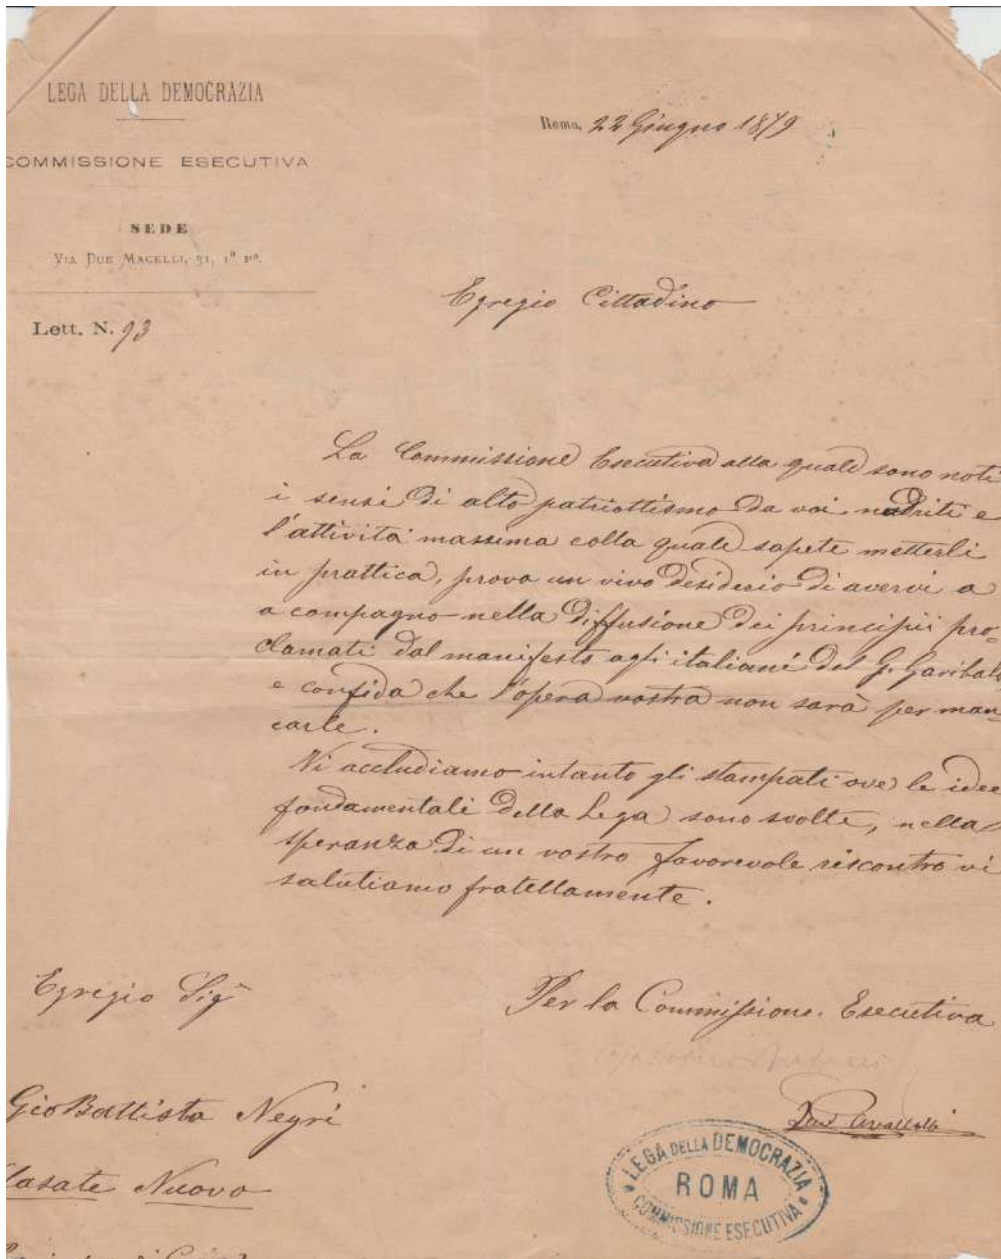 LEGA DELLA DEMOCRAZIA
COMMISSIONE ESECUTIVA
SEDE
VIA DUE MACELLI, 31, 1º Pº.
Lett. N. 93
Roma, 22 Giugno 1879
Egregio Cittadino
La Commissione Esecutiva alla quale sono noti
i sensi di alto patriottismo da voi nudriti e
l'attività massima colla quale sapete metterli
in prattica, prova un vivo desiderio di avervi a
a compagno nella diffusione dei principii pro-
clamati dal manifesto agli italiani del G. Garibaldi
e confida che l'opera vostra non sarà per man-
carle.
Vi accludiamo intanto gli stampati ove le idee
fondamentali della Lega sono svolte, nella
speranza di un vostro favorevole riscontro vi
salutiamo fratellamente.
Per la Commissione Esecutiva
Egregio Sigr
Gio Battista Negri
Casate Nuovo
LEGA DELLA DEMOCRAZIA
ROMA
COMMISSIONE ESECUTIVA